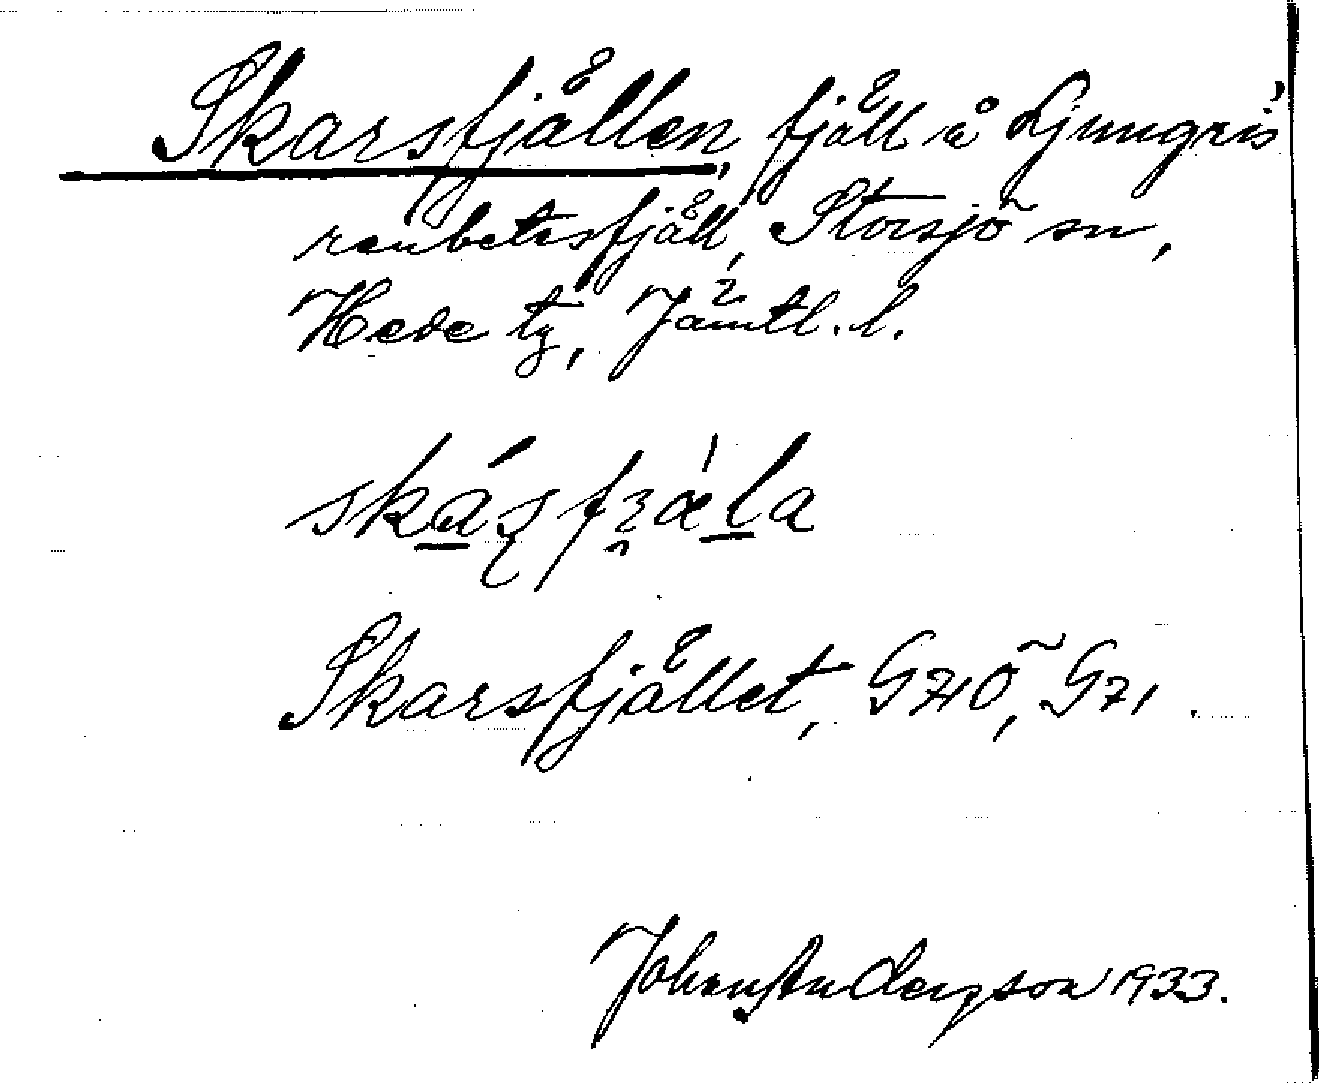 Skarsfjällen, fjäll å Ljungris
renbetesfjäll, Storsjö sn,
Hede tg, Jämtl. l.
Skarsfjället, G71Ö, G71.
Johan Anderzson 1933.